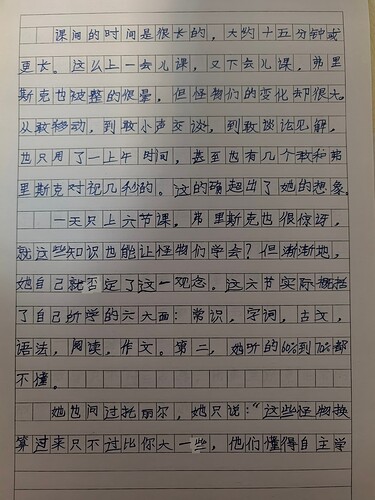 课间的时间是很长的，大约十五分钟或
更长。这么上一会儿课，又下会儿课，弗里
斯克也被整的很晕，但怪物们的变化却很大。
从敢移动，到敢小声交谈，到敢谈论见解，
也只用了一上午时间，甚至也有几个敢和弗
里斯克对视几秒的。这的确超出了她的想象。
一天只上六节课，弗里斯克也很惊讶，
就这些知识也能让怪物们学会？但渐渐地，
她自己就否定了这一观念。这六节实际概括
了自己所学的六大面：常识，字词，古文，
语法，阅读，作文。第二，她听的60%到70%都
不懂。
她也问过托丽尔，她只说：“这些怪物换
算过来只不过比你大一些，他们懂得自主学